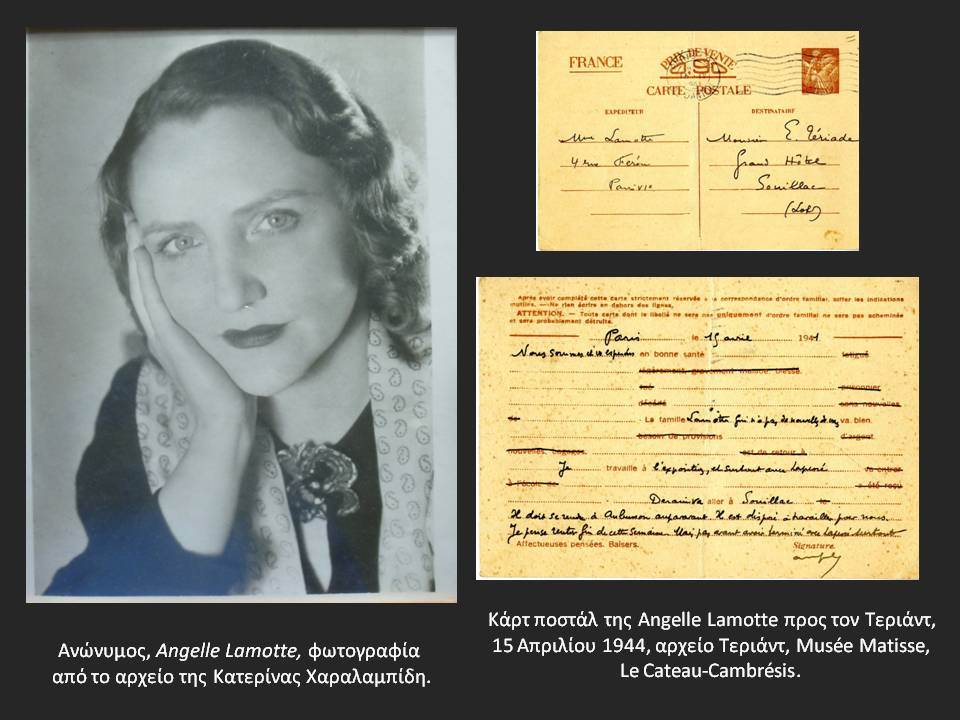 FRANCE
PRIX DE VENTE
CARTE POSTALE
EXPÉDITEUR
DESTINATAIRE
Mme Lamotte
4 rue Férou
Paris VIe
Monsieur E. Tériade
Grand Hôtel
Souillac
(Lot)
Après avoir complété cette carte strictement réservée à la correspondance d'ordre familial, biffer les indications
inutiles. — Ne rien écrire en dehors des lignes.
ATTENTION. — Toute carte dont le libellé ne sera pas uniquement d'ordre familial ne sera pas acheminée
et sera probablement détruite.
Paris le 15 avril 1941
Nous sommes en bonne santé fatigué
légèrement gravement malade, blessé
tué prisonnier
décédé sans nouvelles
de La famille Lamotte va bien.
besoin de provisions d'argent
nouvelles, bagages est de retour à
Je travaille à et surtout avec Laporé va entrer
à l'école de a été reçu
aller à Souillac le
Il doit se rendre à Aubusson auparavant. Il est disposé à travailler pour nous.
Je pense rentrer fin de cette semaine. Mais pas avant avoir terminé avec
Affectueuses pensées. Baisers. Signature
Ανώνυμος, Angelle Lamotte, φωτογραφία
από το αρχείο της Κατερίνας Χαραλαμπίδη.
Κάρτ ποστάλ της Angelle Lamotte προς τον Τεριάντ,
15 Απριλίου 1944, αρχείο Τεριάντ, Musée Matisse,
Le Cateau-Cambrésis.